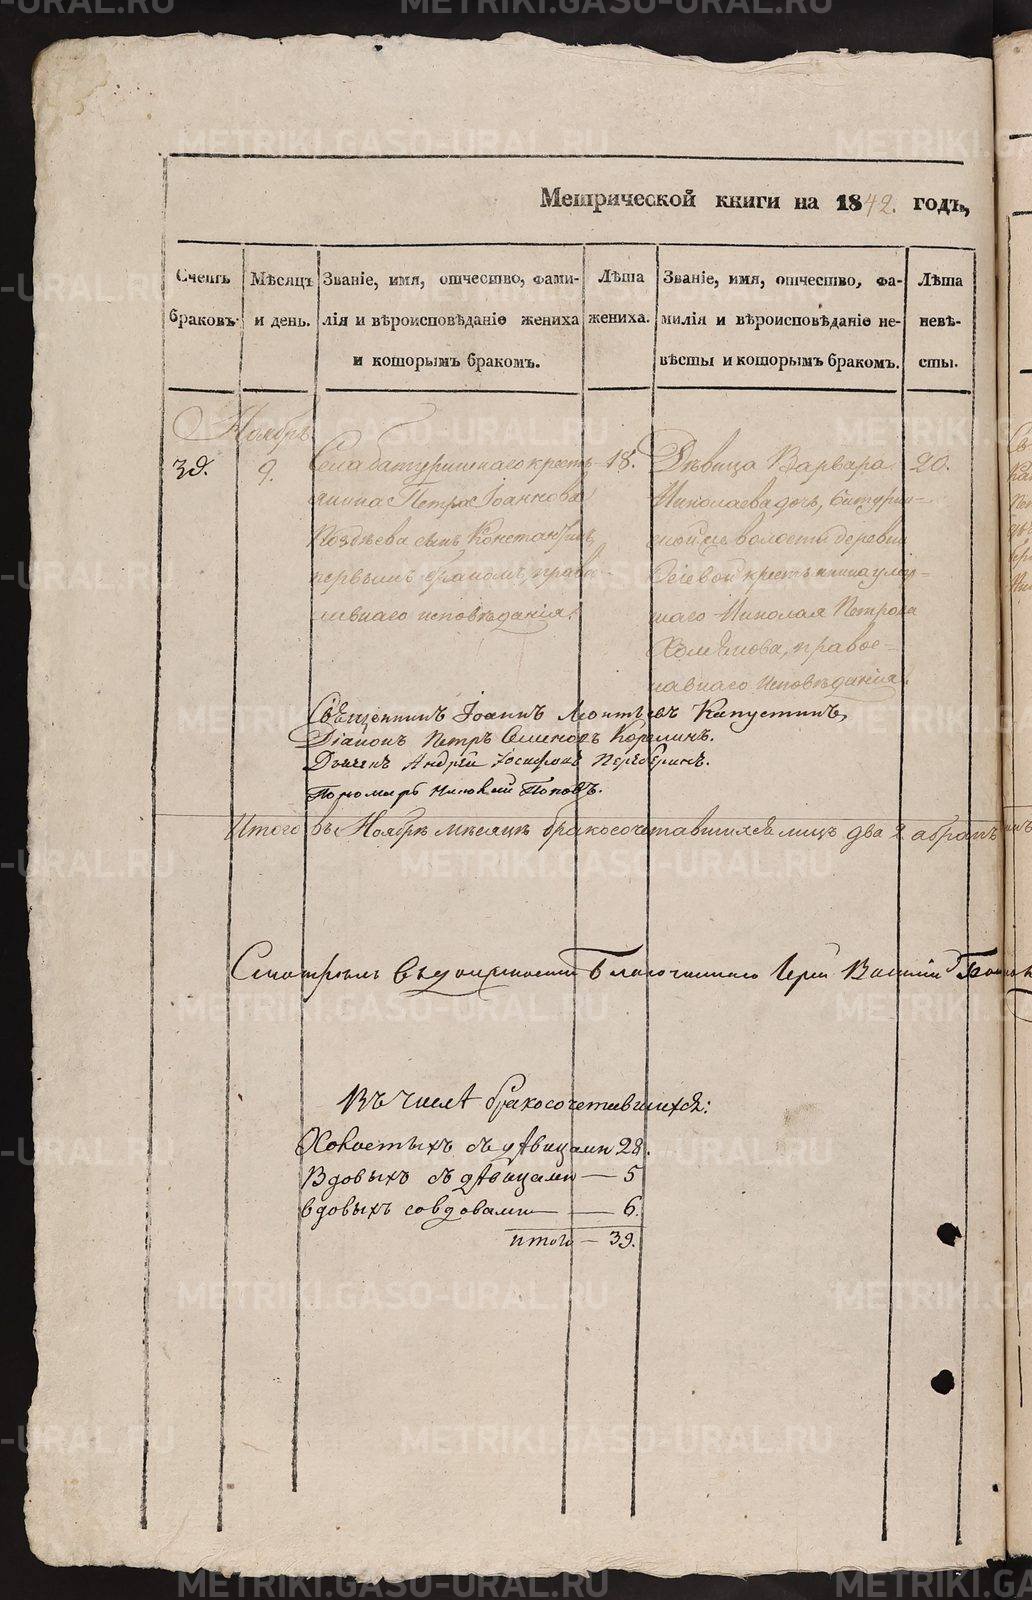 Метрической книги на 1842. годъ,
Счетъ браковъ.
Мѣсяцъ и день.
Званіе, имя, отчество, фамилія и вѣроисповѣданіе жениха и которымъ бракомъ.
Лѣта жениха.
Званіе, имя, отчество, фамилія и вѣроисповѣданіе невѣсты и которымъ бракомъ.
Лѣта невѣсты.
Ноябрь
39.
9.
Села батуринскаго кресть-
янина Петра Іоаннова
Поздѣева сынъ Константинъ,
первымъ бракомъ, право-
славнаго исповѣданія.
18.
Дѣвица Варвара
Николаева дочь, батурин-
ской же волости деревни
крестьянина умер-
шаго Николая Петрова
правос-
лавнаго исповѣданія.
20.
Священникъ Іоаннъ Леонтьевъ Капустинъ,
Діаконъ Петръ Семеновъ
Дьячекъ Андрей Іосифовъ
Пономарь Николай Поповъ.
Итого въ Ноябрѣ мѣсяцѣ бракосочетавшихся лицъ два 2 а бракъ
Смотрѣлъ въ должности Благочиннаго Іерей Василій
Въ числѣ бракосочетавшихся:
Холостыхъ съ дѣвицами 28.
Вдовыхъ съ дѣвицами — 5
вдовыхъ со вдовами — 6.
итого — 39.
METRIKI.GASO-URAL.RU